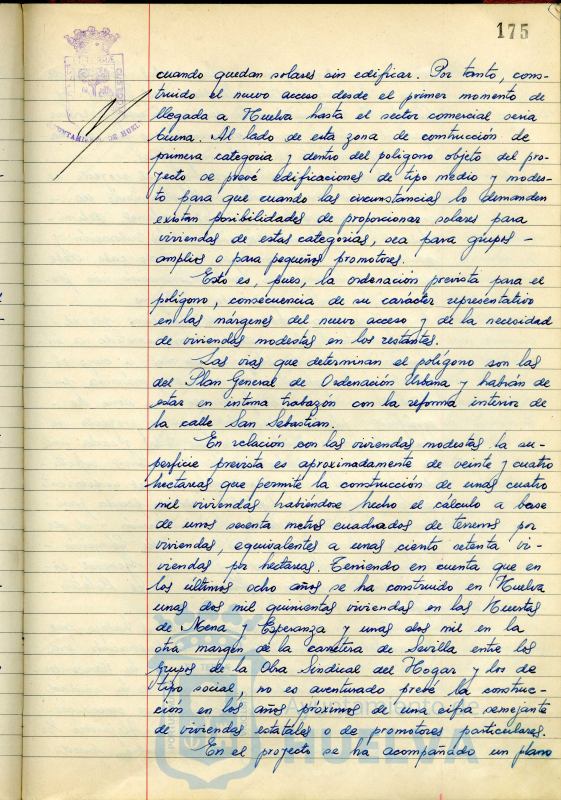 175
cuando quedan solares sin edificar. Por tanto, cons-
truido el nuevo acceso desde el primer momento de
llegada a Huelva hasta el sector comercial seria
buena. Al lado de esta zona de construcción de
primera categoria y dentro del poligono objeto del pro-
yecto se prevé edificaciones de tipo medio y modes-
to para que cuando las circunstancias lo demanden
existan posibilidades de proporcionar solares para
viviendas de estas categorias, sea para grupos -
amplios o para pequeños promotores.
Esto es, pues, la ordenación prevista para el
polígono, consecuencia de su carácter representativo
en las márgenes del nuevo acceso y de la necesidad
de viviendas modestas en los restantes.
Las vias que determinan el polígono son las
del Plan General de Ordenación Urbana y habrán de
estar en intima trabazón con la reforma interior de
la calle San Sebastian.
En relación con las viviendas modestas la su-
perficie prevista es aproximadamente de veinte y cuatro
hectáreas que permite la construcción de unas cuatro
mil viviendas habiéndose hecho el cálculo a base
de unos sesenta metros cuadrados de terreno por
viviendas, equivalentes a unas ciento setenta vi-
viendas por hectáreas. Teniendo en cuenta que en
los últimos ocho años se ha construido en Huelva
unas dos mil quinientas viviendas en las Huertas
de Mena y Esperanza y unas dos mil en la
otra margen de la carretera de Sevilla entre los
grupos de la Obra Sindical del Hogar y los de
tipo social, no es aventurado prevé la construc-
ción en los años próximos de una cifra semejante
de viviendas estatales o de promotores particulares.
En el proyecto se ha acompañado un plano
Ayuntamiento de
HUELVA